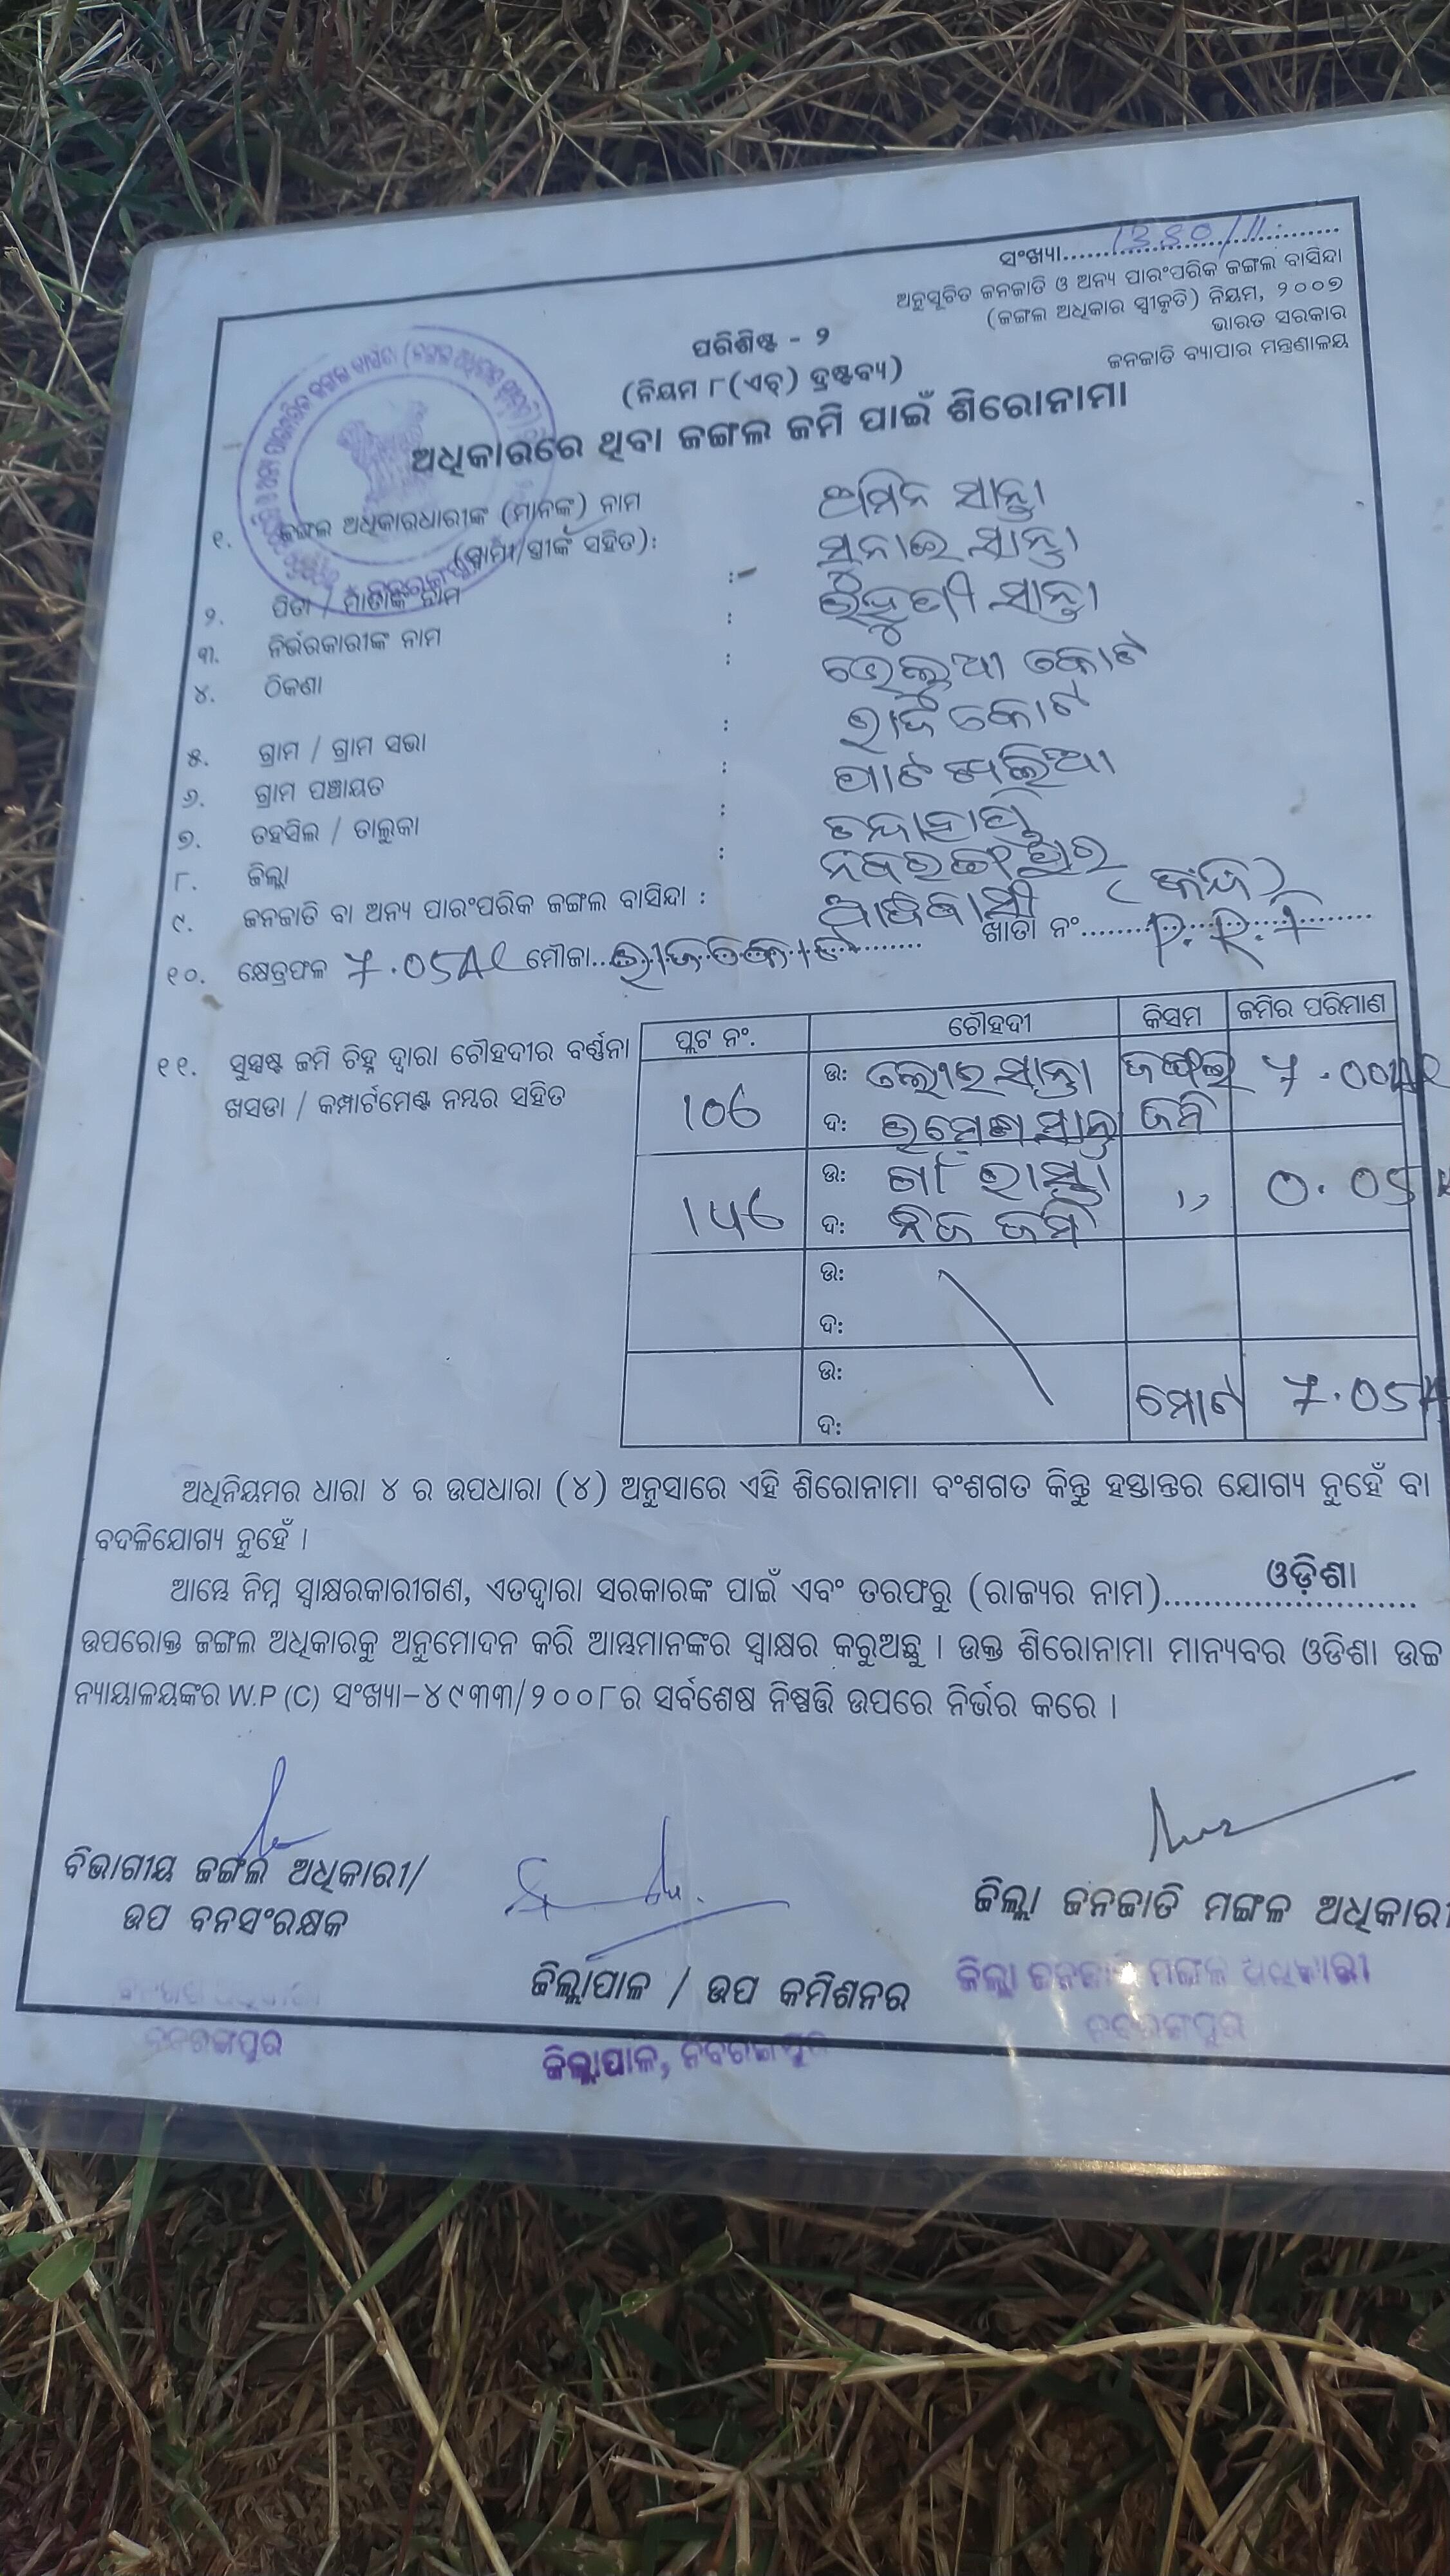 ସଂଖ୍ୟା..............................
ଅନୁସୂଚିତ ଜନଜାତି ଓ ଅନ୍ୟ ପାରଂପରିକ ଜଙ୍ଗଲ ବାସିନ୍ଦା
(ଜଙ୍ଗଲ ଅଧିକାର ସ୍ୱୀକୃତି) ନିୟମ, ୨୦୦୭
ଭାରତ ସରକାର
ଜନଜାତି ବ୍ୟାପାର ମନ୍ତ୍ରଣାଳୟ
ପରିଶିଷ୍ଟ - ୨
(ନିୟମ ୮(ଏଚ୍) ଦ୍ରଷ୍ଟବ୍ୟ)
ଅଧିକାରରେ ଥିବା ଜଙ୍ଗଲ ଜମି ପାଇଁ ଶିରୋନାମା
୧. ଜଙ୍ଗଲ ଅଧିକାରଧାରୀଙ୍କ (ମାନଙ୍କ) ନାମ ସାନ୍ତା
(ସ୍ୱାମୀ/ସ୍ତ୍ରୀଙ୍କ ସହିତ): ସୁନାଇ ସାନ୍ତା
୨. ପିତା / ମାତାଙ୍କ ନାମ : ସାନ୍ତା
୩. ନିର୍ଭରକାରୀଙ୍କ ନାମ :
୪. ଠିକଣା :
୫. ଗ୍ରାମ / ଗ୍ରାମ ସଭା :
୬. ଗ୍ରାମ ପଞ୍ଚାୟତ :
୭. ତହସିଲ / ତାଲୁକା :
୮. ଜିଲ୍ଲା : ନବରଙ୍ଗପୁର
୯. ଜନଜାତି ବା ଅନ୍ୟ ପାରଂପରିକ ଜଙ୍ଗଲ ବାସିନ୍ଦା : ଆଦିବାସୀ
୧୦. କ୍ଷେତ୍ରଫଳ 7.05 ମୌଜା.............................. ଖାତା ନଂ..............................
୧୧. ସୁସ୍ପଷ୍ଟ ଜମି ଚିହ୍ନ ଦ୍ୱାରା ଚୌହଦୀର ବର୍ଣ୍ଣନା
ଖସଡା / କମ୍ପାର୍ଟମେଣ୍ଟ ନମ୍ବର ସହିତ
ପ୍ଲଟ ନଂ. ଚୌହଦୀ କିସମ ଜମିର ପରିମାଣ
106 ଉ: ସାନ୍ତା ଜଙ୍ଗଲ 7.00
ଦ: ସାନ୍ତା ଜମି
146 ଉ: ଗାଁ ରାସ୍ତା ,, 0.05
ଦ: ନିଜ ଜମି
ଉ:
ଦ:
ଉ:
ଦ: ମୋଟ 7.05
ଅଧିନିୟମର ଧାରା ୪ ର ଉପଧାରା (୪) ଅନୁସାରେ ଏହି ଶିରୋନାମା ବଂଶଗତ କିନ୍ତୁ ହସ୍ତାନ୍ତର ଯୋଗ୍ୟ ନୁହେଁ ବା
ବଦଳିଯୋଗ୍ୟ ନୁହେଁ ।
ଆମ୍ଭେ ନିମ୍ନ ସ୍ୱାକ୍ଷରକାରୀଗଣ, ଏତଦ୍ୱାରା ସରକାରଙ୍କ ପାଇଁ ଏବଂ ତରଫରୁ (ରାଜ୍ୟର ନାମ)..........ଓଡ଼ିଶା..........
ଉପରୋକ୍ତ ଜଙ୍ଗଲ ଅଧିକାରକୁ ଅନୁମୋଦନ କରି ଆମ୍ଭମାନଙ୍କର ସ୍ୱାକ୍ଷର କରୁଅଛୁ । ଉକ୍ତ ଶିରୋନାମା ମାନ୍ୟବର ଓଡିଶା ଉଚ୍ଚ
ନ୍ୟାୟାଳୟଙ୍କର W.P (C) ସଂଖ୍ୟା-୪୯୩୩/୨୦୦୮ର ସର୍ବଶେଷ ନିଷ୍ପତ୍ତି ଉପରେ ନିର୍ଭର କରେ ।
ବିଭାଗୀୟ ଜଙ୍ଗଲ ଅଧିକାରୀ/
ଉପ ବନସଂରକ୍ଷକ
ଜିଲ୍ଲା ଜନଜାତି ମଙ୍ଗଳ ଅଧିକାରୀ
ଜିଲ୍ଲାପାଳ / ଉପ କମିଶନର
ଜିଲ୍ଲା ଜନଜାତି ମଙ୍ଗଳ ଅଧିକାରୀ
ନବରଙ୍ଗପୁର
ନବରଙ୍ଗପୁର
ଜିଲ୍ଲାପାଳ, ନବରଙ୍ଗପୁର